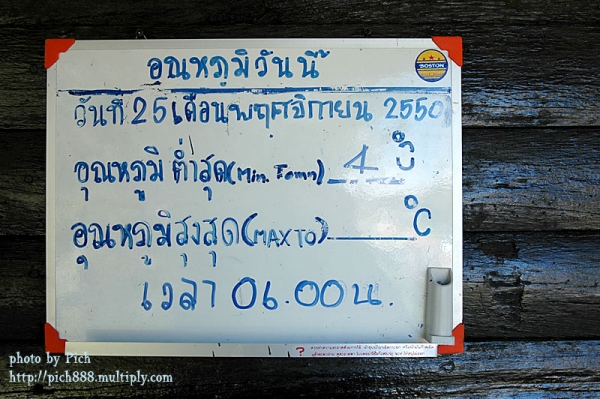 อุณหภูมิวันนี้
BOSTON
วันที่ 25 เดือนพฤศจิกายน 2550
อุณหภูมิ ต่ำสุด (Min. Temp) 4 °C
อุณหภูมิสูงสุด (MAX TO) °C
เวลา 06.00 น.
?
photo by Pich
http://pich888.multiply.com